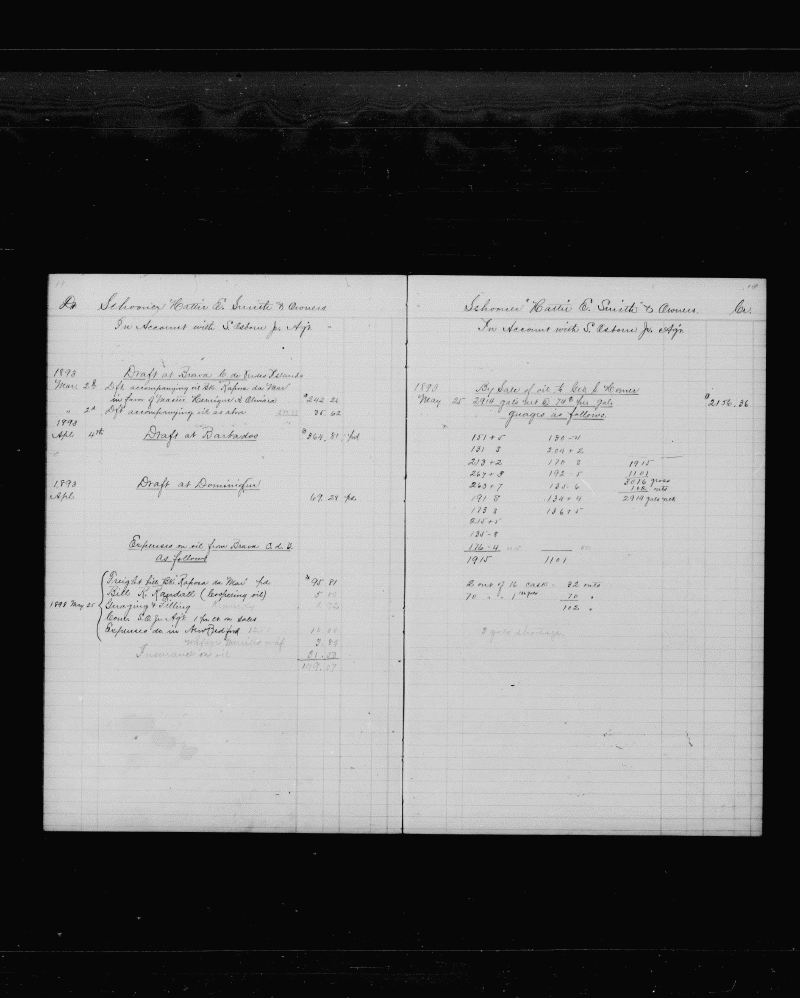 Dr Schooner "Hattie E. Smith" & Owners
In Account with S. Osborn Jr. Agt
1893 Draft at Brava C. de Verdes Islands
Mar. 2d Dft accompanying oil Bk. Raposa da Mar
in favor of $242.26
" 2d Dft accompanying oil as abov 35.62
1893
Apl 4th Draft at Barbados $364.81 pd
1893 Draft at Dominique
Apl 69.28 pd
Expenses on oil from Brava C. d. V.
as follows
Freight pr Bk. Raposa da Mar pd $95.81
Bill (Coopering oil) 5.00
1893 May 25 Guaging & Filling
Coms S.O. Jr. Agt 1 pr ct on sales
Expenses do in New Bedford
Insurance on oil
Schooner "Hattie E. Smith" & Owners Cr.
In Account with S. Osborn Jr. Agt
1893 By Sale of oil to Geo. S. Homer
May 25 2914 gals net @ 74c per gal. $2156.36
guages as follows
151+5 180-4
131 8 204+2
213+2 170 8 1915
267+3 192-5 1101
263+7 135-6 3016 gross
191 8 134+4 102 outs
173 8 136+5 2914 gals net
215+5
135-8
176-4
1915 1101
2 outs of 16 casks = 32 outs
70 " " 1 " 70 "
102 "
2 gals shortage